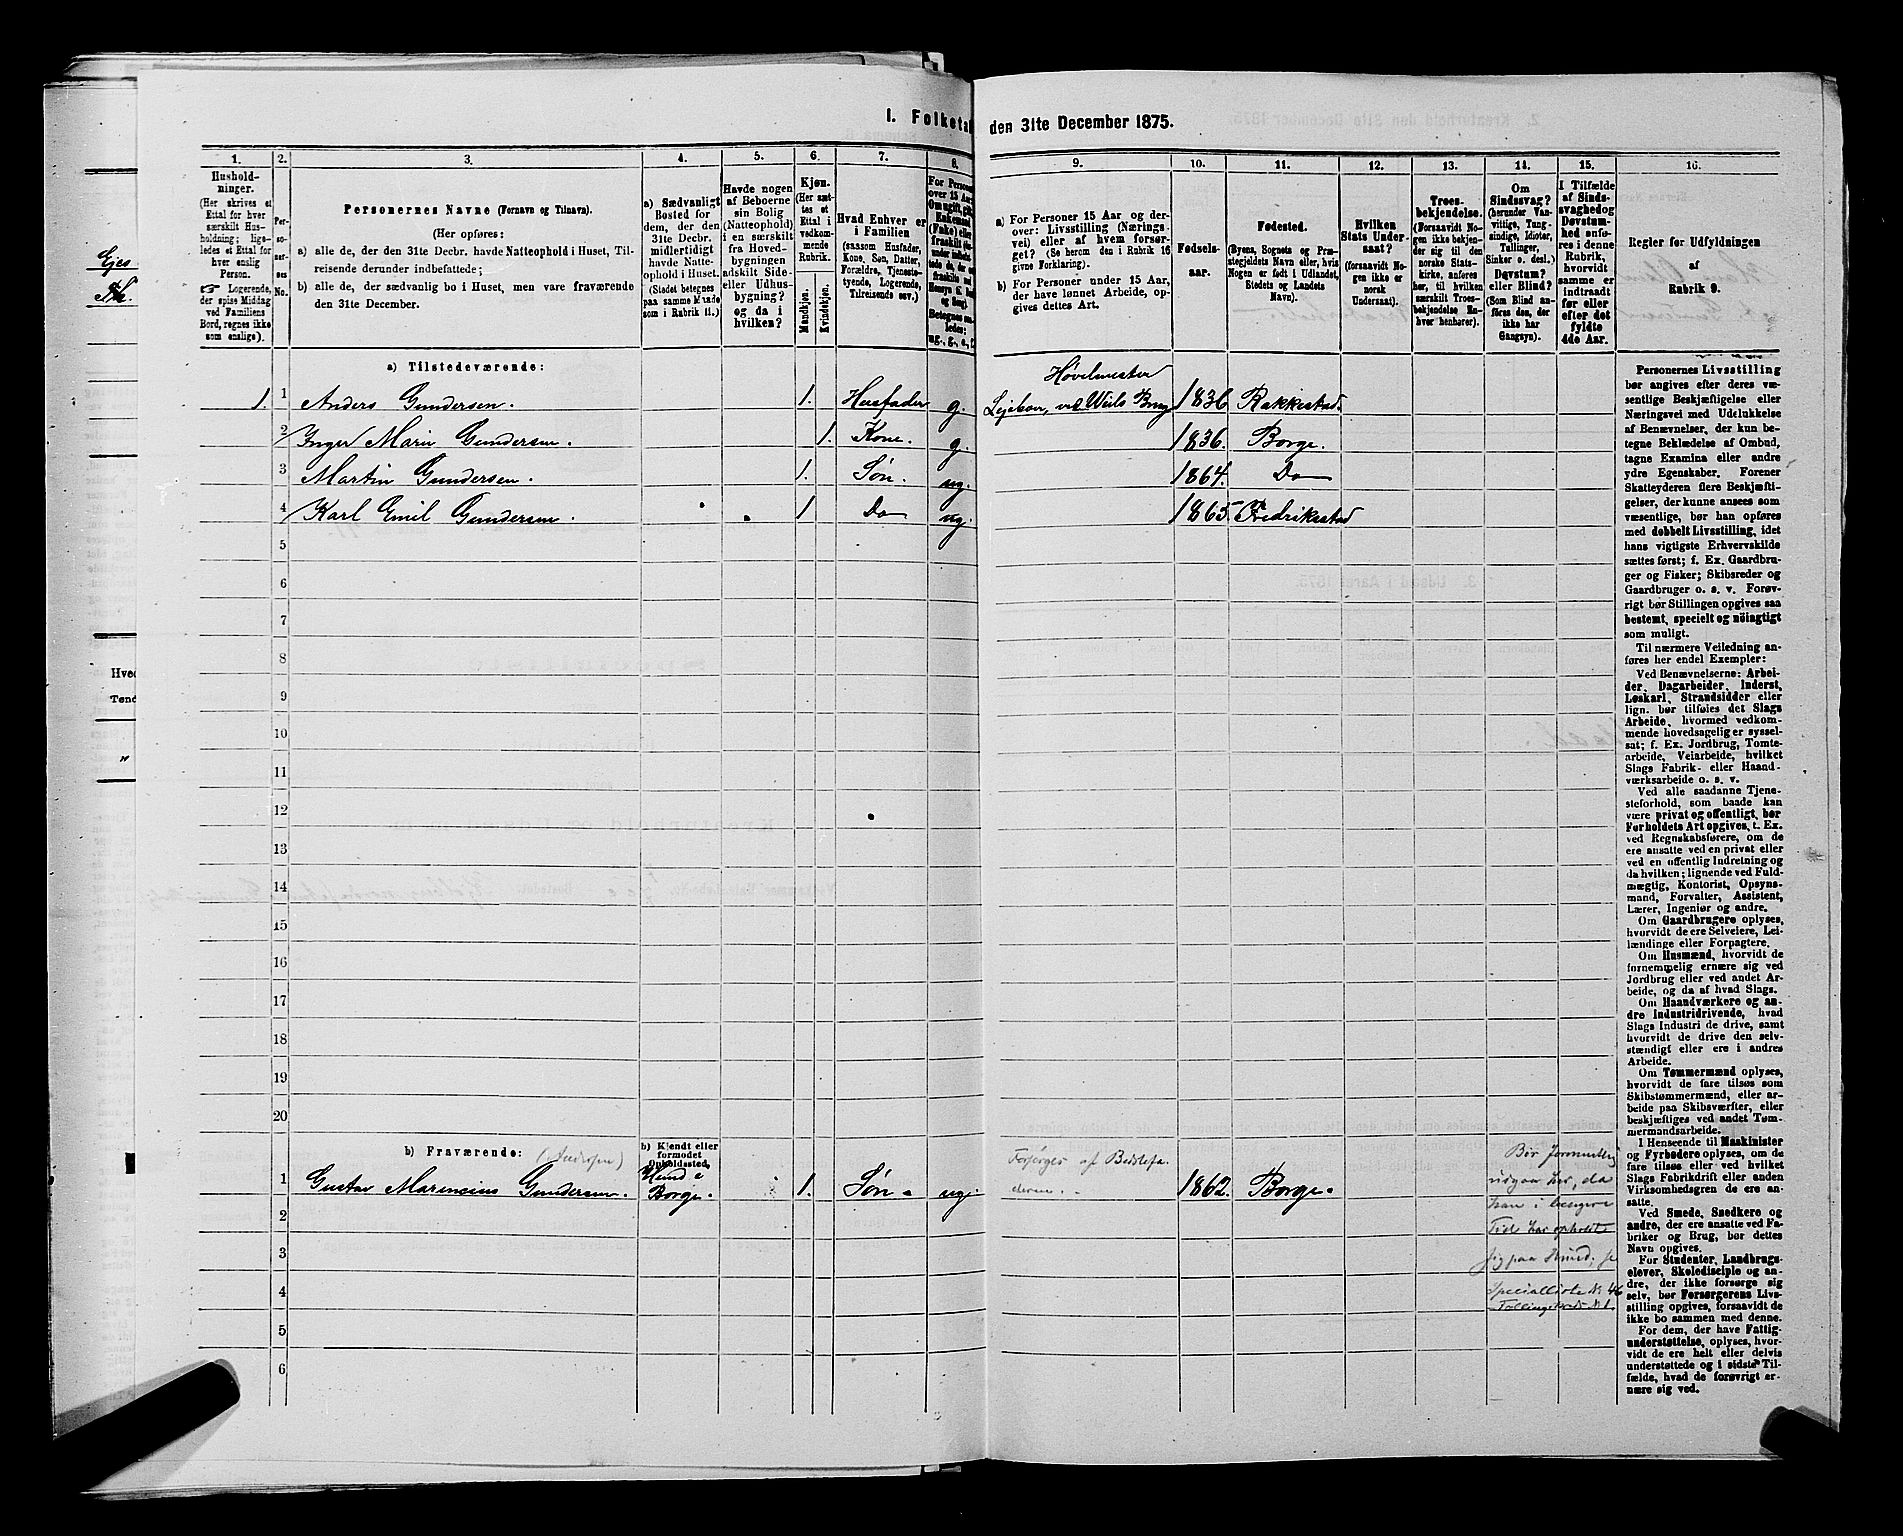 I. Folketal
den 31te December 1875.
1.
2.
3.
4.
5.
6.
7.
8.
9.
10.
11.
12.
13.
14.
15.
16.
Hushold-
ninger.
(Her skrives et
Ettal for hver
særskilt Hus-
holdning; lige-
ledes et Ettal
for hver enslig
Person.
Logerende,
der spise Middag
ved Familiens
Bord, regnes ikke
som enslige).
Per-
so-
ner-
nes
No.
Personernes Navne (Fornavn og Tilnavn).
(Her opføres:
a) alle de, der den 31te Decbr. havde Natteophold i Huset, Til-
reisende derunder indbefattede;
b) alle de, der sædvanlig bo i Huset, men vare fraværende
den 31te December.
a) Sædvanligt
Bosted for
dem, der den
31te Decbr.
midlertidigt
havde Natte-
ophold i Huset.
(Stedet betegnes
paa samme Maade
som i Rubrik 11.)
Havde nogen
af Beboerne
sin Bolig
(Natteophold)
i en særskilt
fra Hoved-
bygningen
adskilt Side-
eller Udhus-
bygning?
og da i
hvilken?
Kjøn.
(Her sæt-
tes et
Ettal i
vedkom-
mende
Rubrik.
Mandkjøn.
Kvindekjøn.
Hvad Enhver er
i Familien
(saasom Husfader,
Kone, Søn, Datter,
Forældre, Tjeneste-
tyende, Logerende,
Tilreisende osv.)
a) For Personer 15 Aar og der-
over: Livsstilling (Nærings-
vei) eller af hvem forsør-
get? (Se herom den i Rubrik 16
givne Forklaring).
b) For Personer under 15 Aar,
der have lønnet Arbeide, op-
gives dettes Art.
Fødsels-
aar.
Fødested.
(Byens, Sognets og Præ-
stegjeldets Navn eller, hvis
Nogen er født i Udlandet,
Stedets og Landets
Navn).
Hvilken
Stats Under-
saat?
(forsaavidt No-
gen ikke er
norsk
Undersaat).
Troes-
bekjendelse.
(Forsaavidt No-
gen ikke bekjen-
der sig til den
norske Stats-
kirke, anføres
her, til hvilken
særskilt Troes-
bekjendelse En-
hver henhører).
Om
Sindssvag?
(herunder Van-
vittige, Tung-
sindige, Idioter,
Tullinger,
Sinker o. desl.)
Døvstum?
eller Blind?
(Som Blind an-
føres den, der
ikke har
Gangsyn).
I Tilfælde
af Sinds-
svaghed og
Døvstum-
hed anfø-
res i denne
Rubrik,
hvorvidt
samme er
indtraadt
før eller
efter det
fyldte
4de Aar.
Regler for Udfyldningen
af
Rubrik 9.
a) Tilstedeværende:
Høvelmester
1. 1 Anders Gundersen. 1. Husfader g. Leiebor, ved Weils Brug 1836 Rakkestad.
2 Inger Marie Gundersen. 1. Kone. g. 1836. Borge.
3 Martin Gundersen. 1. Søn. ug. 1864. Do
4 Karl Emil Gundersen. 1 Do ug. 1865. Fredriksstad
5
6
7
8
9
10
11
12
13
14
15
16
17
18
19
20
b) Fraværende:
b) Kjendt eller
formodet
Opholdssted.
Forsørges af Bedstefa-
1 Gustav Marencius Gundersen. Borge. 1. Søn ug. 1862. Borge.
2
3
4
5
6
Bør formentlig
udgaa her, da
han i længere
Tid har opholdt
sig paa Hund, se
Specialliste No 46
Tællingskreds No 1.
Personernes Livsstilling
bør angives efter deres væ-
sentlige Beskjæftigelse eller
Næringsvei med Udelukkelse
af Benævnelser, der kun be-
tegne Beklædelse af Ombud,
tagne Examina eller andre
ydre Egenskaber. Forener
Skatteyderen flere Beskjæfti-
gelser, der kunne ansees som
væsentlige, bør han opføres
med dobbelt Livsstilling, idet
hans vigtigste Erhvervskilde
sættes først; f. Ex. Gaardbru-
ger og Fisker; Skibsreder og
Gaardbruger o. s. v. Forøv-
rigt bør Stillingen opgives saa
bestemt, specielt og nöiagtigt
som muligt.
Til nærmere Veiledning an-
føres her endel Exempler:
Ved Benævnelserne: Arbei-
der, Dagarbeider, Inderst,
Løskarl, Strandsidder eller
lign. bør tilføies det Slags
Arbeide, hvormed vedkom-
mende hovedsagelig er syssel-
sat; f. Ex. Jordbrug, Tomte-
arbeide, Veiarbeide, hvilket
Slags Fabrik- eller Haand-
værksarbeide o. s. v.
Ved alle saadanne Tjene-
steforhold, som baade kan
være privat og offentligt, bør
Forholdets Art opgives, t. Ex.
ved Regnskabsførere, om de
ere ansatte ved en privat eller
ved en offentlig Indretning og
da hvilken; lignende ved Fuld-
mægtig, Kontorist, Opsyns-
mand, Forvalter, Assistent,
Lærer, Ingeniør og andre.
Om Gaardbrugere oplyses,
hvorvidt de ere Selveiere, Lei-
lændinge eller Forpagtere.
Om Husmænd, hvorvidt de
fornemmelig ernære sig ved
Jordbrug eller ved andet Ar-
beide, og da af hvad Slags.
Om Haandværkere og an-
dre Industridrivende, hvad
Slags Industri de drive, samt
hvorvidt de drive den selv-
stændigt eller ere i andres
Arbeide.
Om Tømmermænd oplyses,
hvorvidt de fare tilsøs som
Skibstømmermænd, eller ar-
beide paa Skibsværfter, eller
beskjæftiges ved andet Tøm-
mermandsarbeide.
I Henseende til Maskinister
og Fyrbødere oplyses, om de
fare tilsøs eller ved hvilket
Slags Fabrikdrift eller anden
Virksomhedsgren de ere an-
satte.
Ved Smede, Snedkere og
andre, der ere ansatte ved Fa-
briker og Brug, bør dettes
Navn opgives.
For Studenter, Landbrugs-
elever, Skoledisciple og an-
dre, der ikke forsørge sig
selv, bør Forsørgerens Livs-
stilling opgives, forsaavidt de
ikke bo sammen med denne.
For dem, der have Fattig-
understøttelse, oplyses, hvor-
vidt de ere helt eller delvis
understøttede og i sidste Til-
fælde, hvad de forøvrigt er-
nære sig ved.